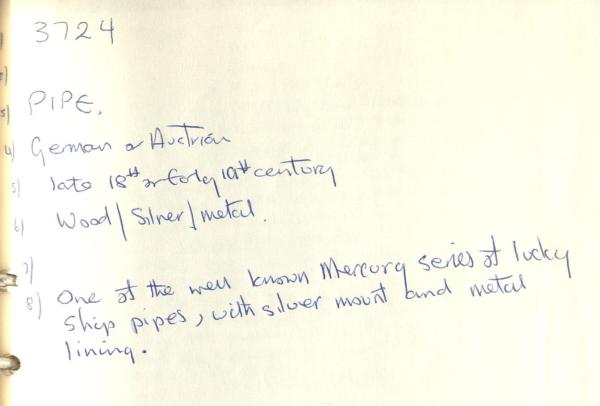 3724
3) PIPE.
4) German or Austrian
5) late 18th or Early 19th century
6) Wood / Silver / metal.
7)
8) One of the well known Mercury series of lucky
ship pipes, with silver mount and metal
lining.